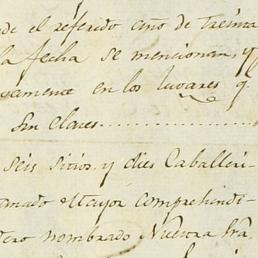 de el referido cino de Treinta
la fecha se mencionan, y
yamente en los lugares q
Sin Claves...............
seis sitios, y dies Caballeri-
amado Mayor comprehindi-
tero nombrado Nuestra Sra